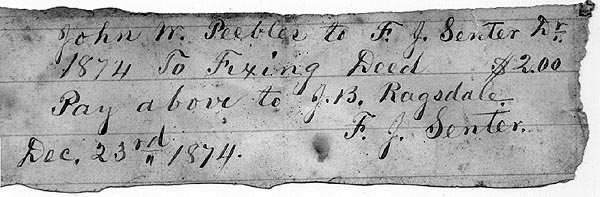 John W. Peebles to F. J. Senter Dr.
1874 To Fixing Deed $2.00
Pay above to J. B. Ragsdale.
F. J. Senter.
Dec. 23rd 1874.